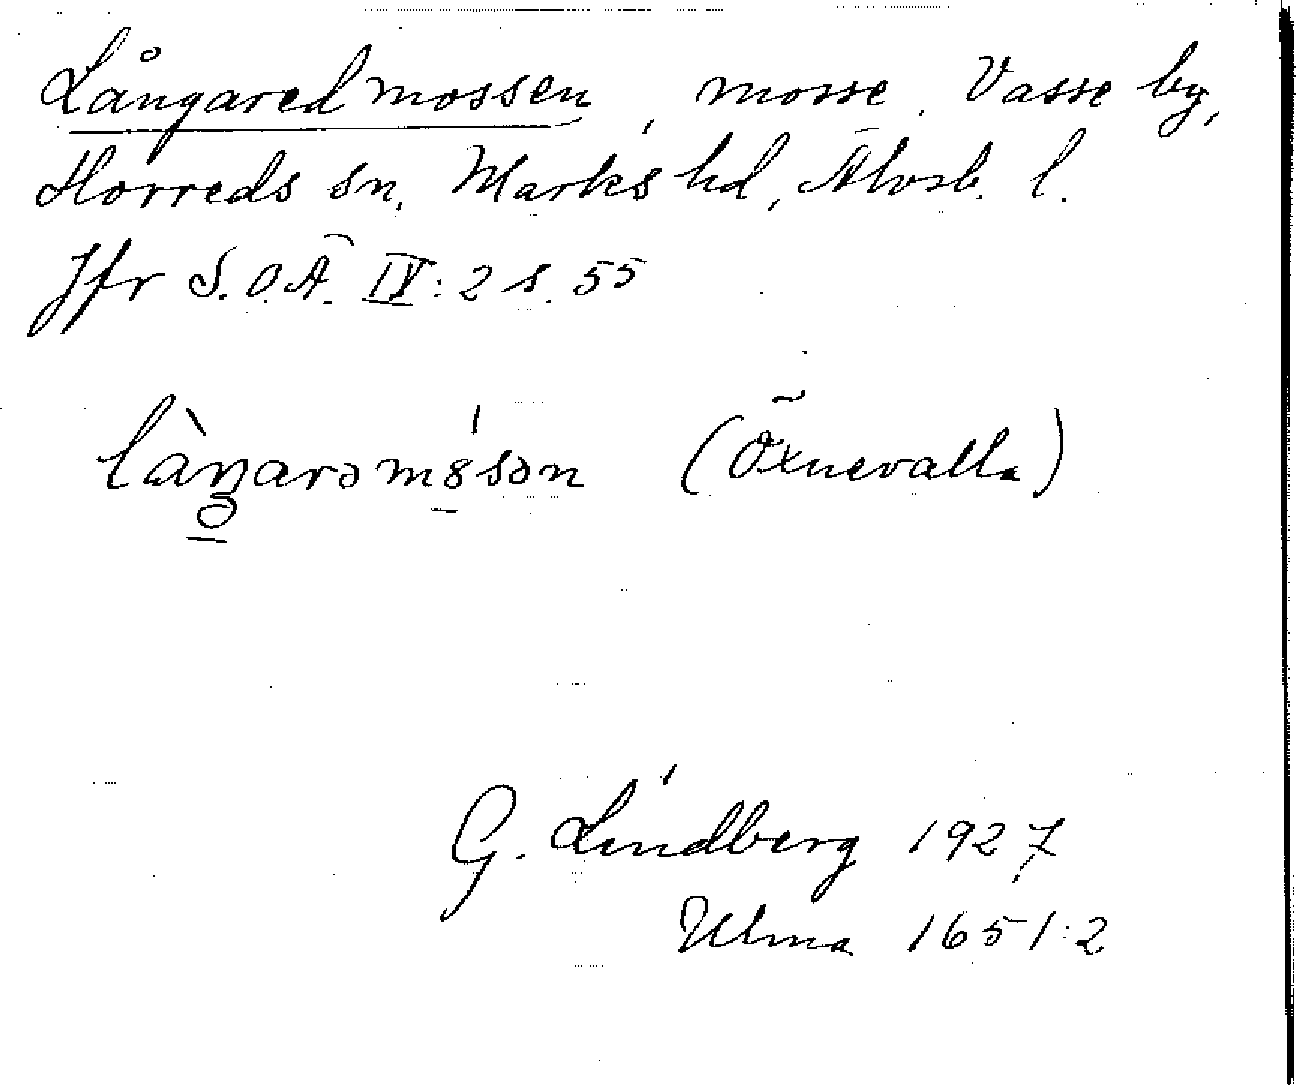 Långaredmossen, mosse, Vasse by,
Horreds sn, Marks hd, Älvsb. l.
Jfr S.O.Ä. IV: 2 s. 55
(Öxnevalla)
G. Lindberg 1927
Ulma 1651:2